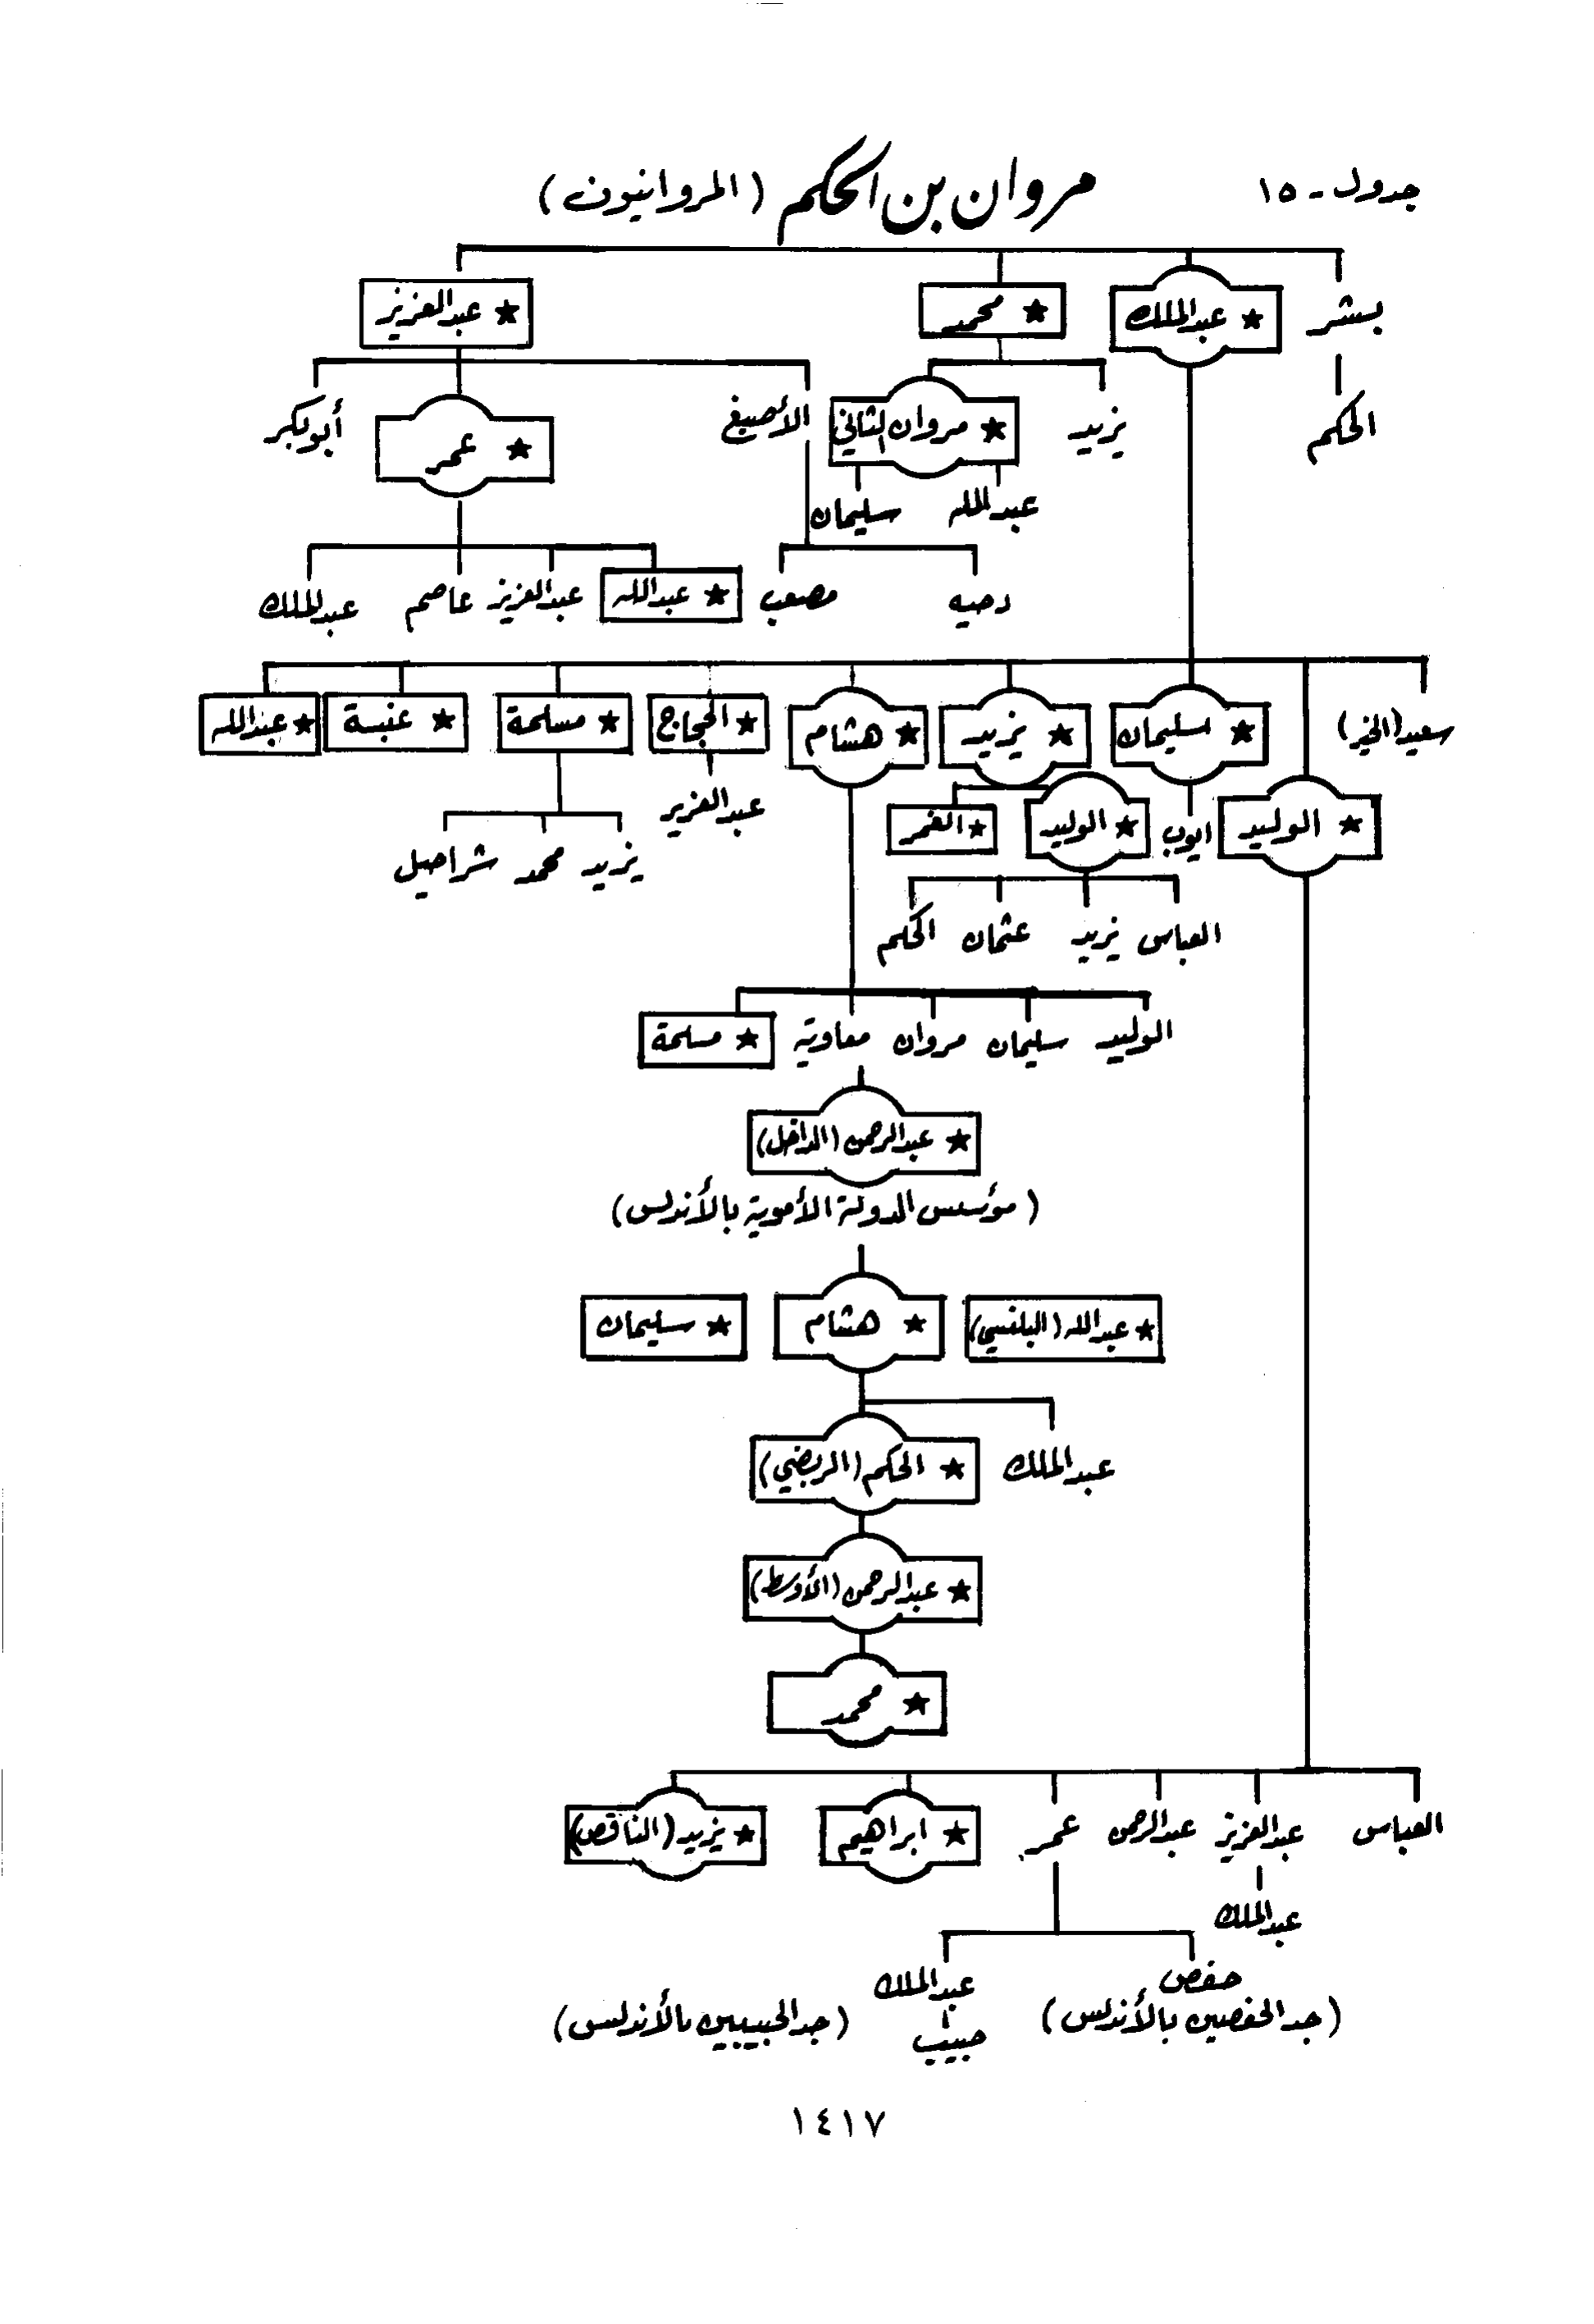 جدول - ١٥
مروان بن الحكم (المروانيون)
بشر ★ عبدالملك ★ محمد ★ عبدالعزيز
الحكم يزيد ★ مروان الثاني الأصبغ ★ عمر أبوبكر
عبدالله سليمان
دحيه مصعب ★ عبدالله عبدالعزيز عاصم عبدالملك
سعيد (الخير) ★ سليمان ★ يزيد ★ هشام ★ الحجاج ★ مسلمة ★ عنبسة ★ عبدالله
★ الوليد ايوب ★ الوليد ★ الغمر عبدالعزيز
يزيد محمد شراحيل
العباس يزيد عثمان الحكم
الوليد سليمان مروان معاوية ★ مسلمة
★ عبدالرحمن (الداخل)
(مؤسس الدولة الأموية بالأندلس)
★ عبدالله (البلنسي) ★ هشام ★ سليمان
عبدالملك ★ الحكم (الربضي)
★ عبدالرحمن (الأوسط)
★ محمد
العباس عبدالعزيز عبدالرحمن عمر ★ ابراهيم ★ يزيد (الناقص)
عبدالملك
حفص عبدالملك
(جد الحفصيين بالأندلس) حبيب (جد الحبيبيين بالأندلس)
١٤١٧